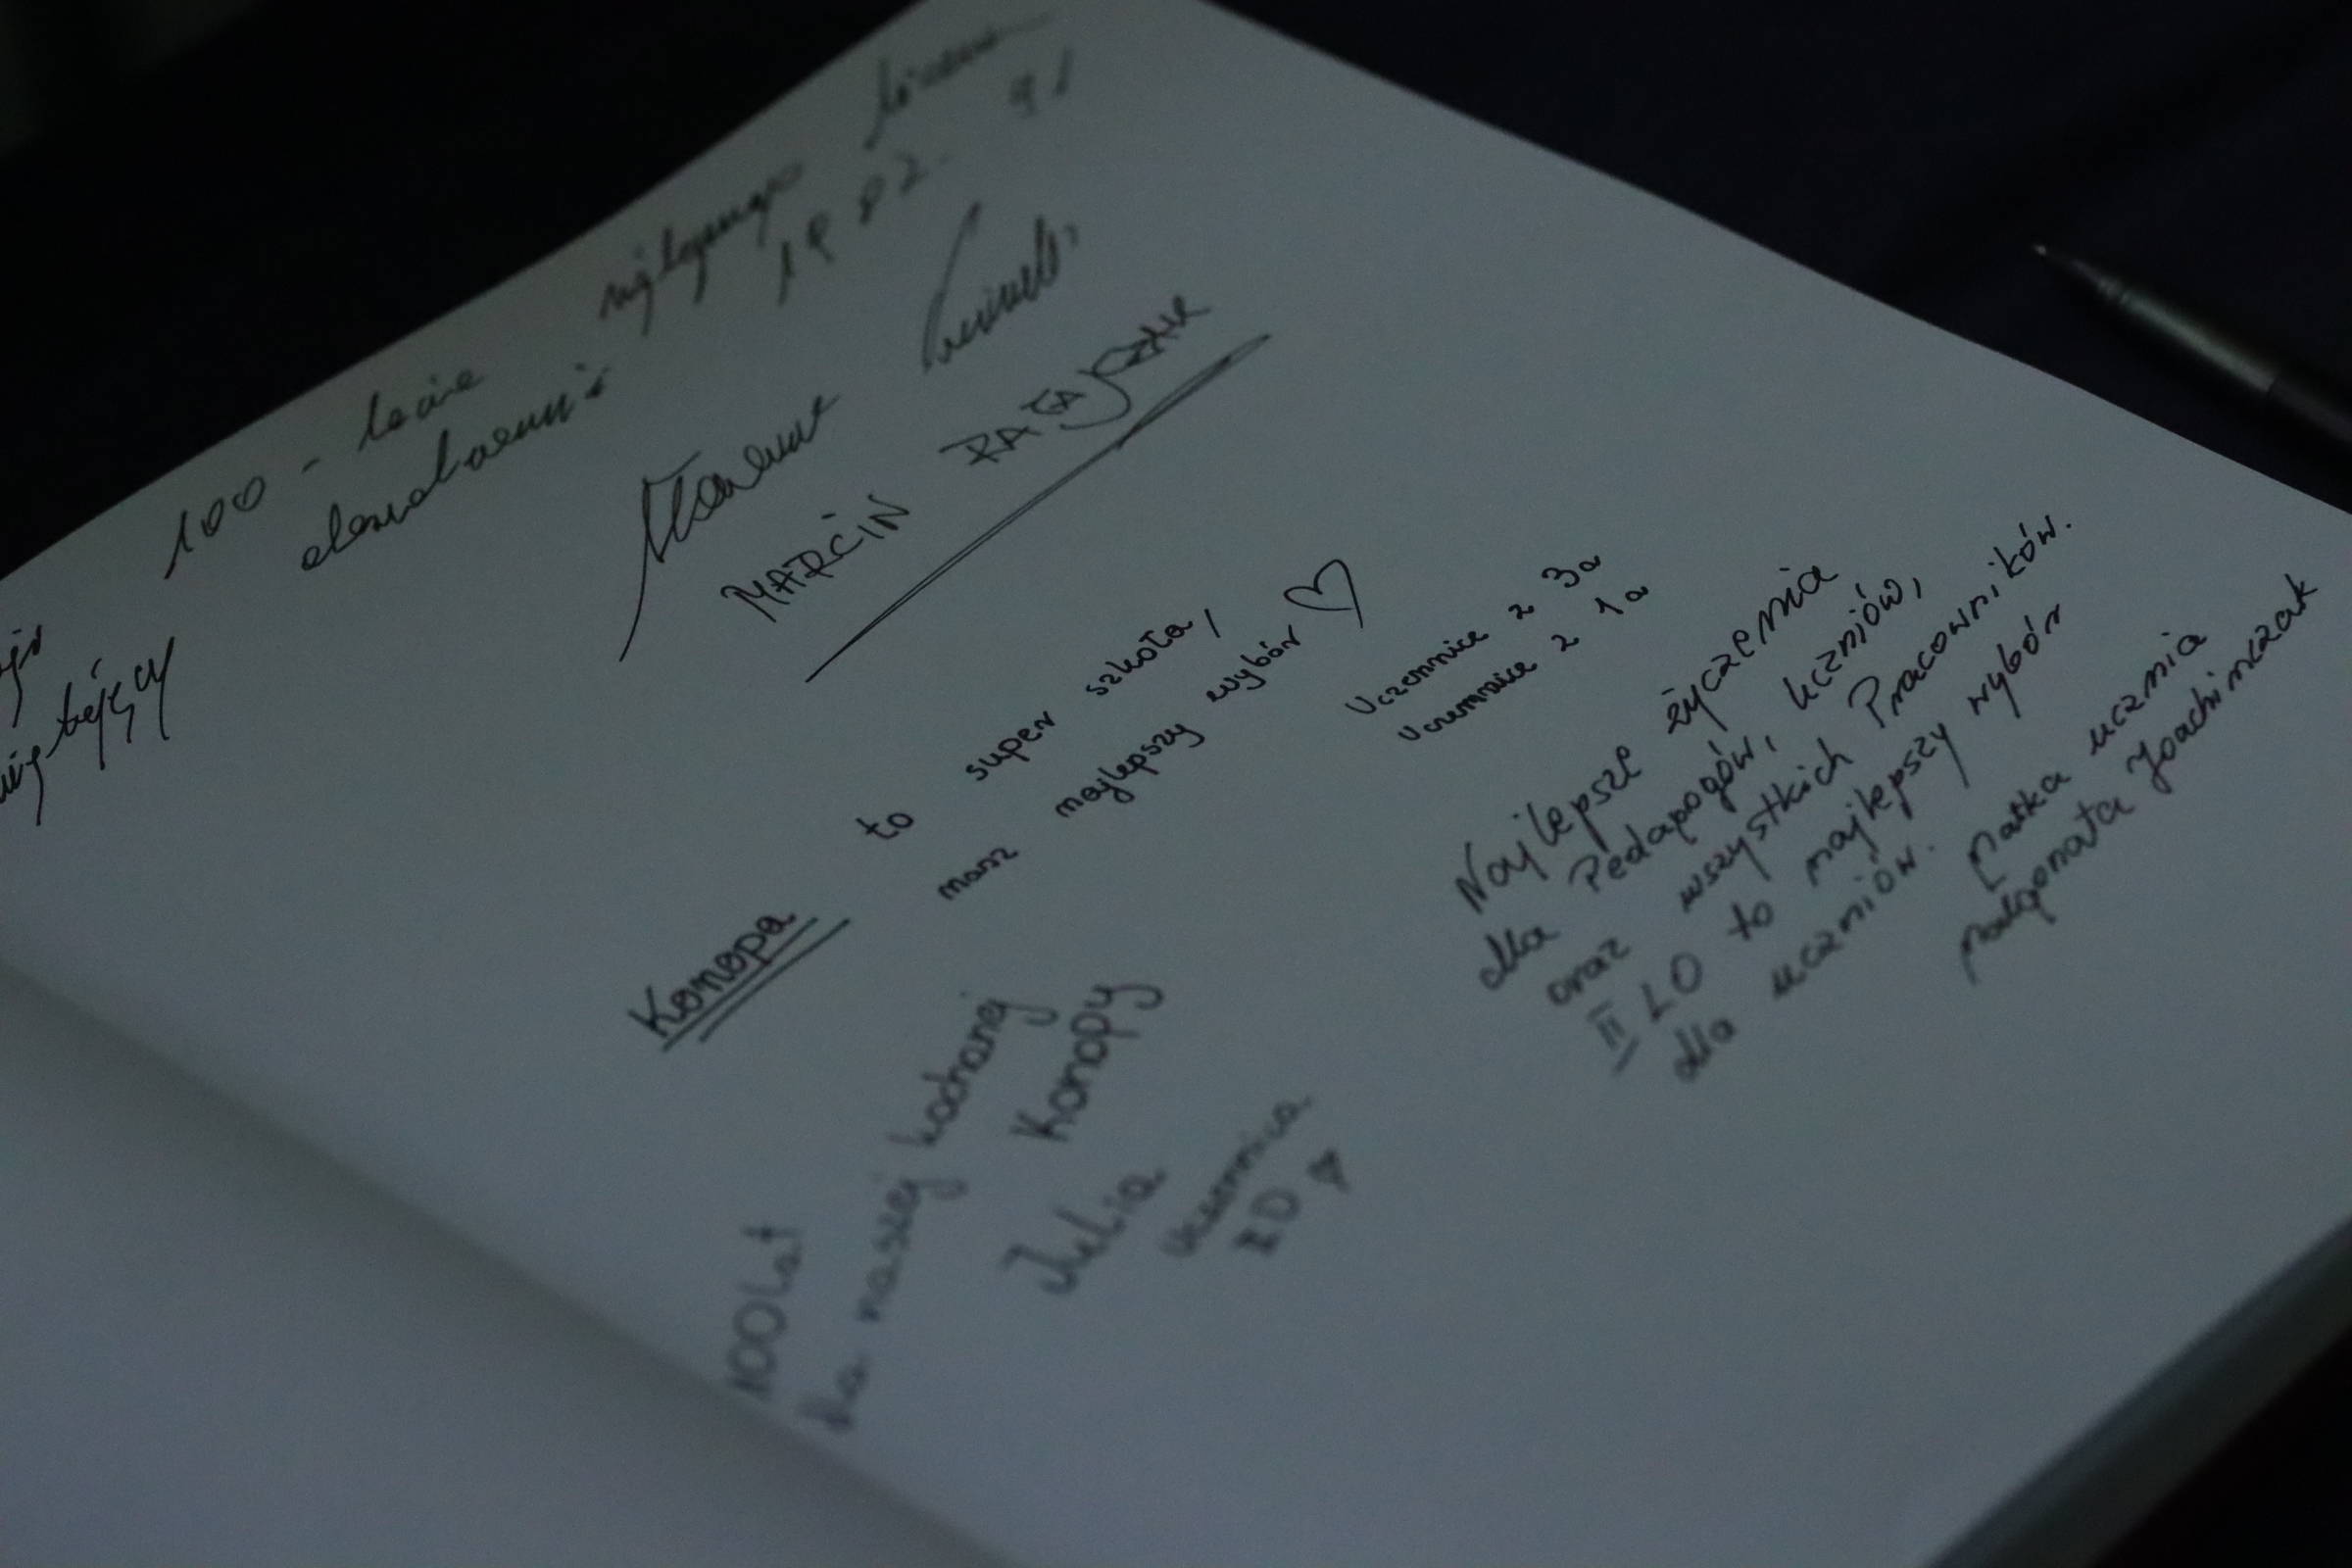 100 - lecie najlepszego liceum
1982 - 91
MARCIN RATAJCZAK
Konopa to super szkoła,
nasz najlepszy wybór ♡
Uczennice z 3a
Uczennice z 1a
Najlepsze życzenia
dla Pedagogów, uczniów,
oraz wszystkich Pracowników.
II LO to najlepszy wybór
dla uczniów.
Matka ucznia
Małgorzata Joachimczak
100 lat
Dla naszej kochanej
Konopy
Julia
uczennica